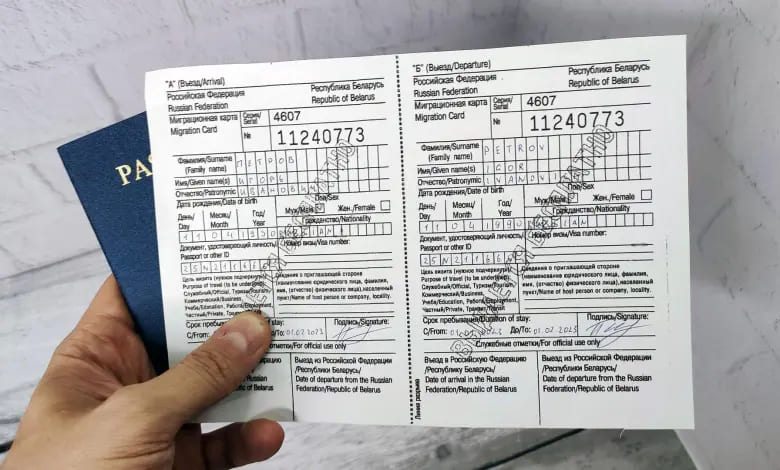 PAS
"А" (Въезд/Arrival)
Российская Федерация Республика Беларусь
Russian Federation Republic of Belarus
Миграционная карта Серия/ 4607
Migration Card Serial
№ 11240773
Фамилия/Surname ПЕТРОВ
(Family name)
Имя/Given name(s) ИГОРЬ
Отчество/Patronymic ИВАНОВИЧ
Дата рождения/Date of birth Пол/Sex
День/ Месяц/ Год/ Муж/Male Жен./Female
Day Month Year Гражданство/Nationality
Документ, удостоверяющий личность/ Номер визы/Visa number:
Passport or other ID
Цель визита (нужное подчеркнуть)/ Сведения о приглашающей стороне
Purpose of travel (to be underlined): (наименование юридического лица, фамилия,
Служебный/Official, Туризм/Tourism, имя, (отчество) физического лица), населенный
Коммерческий/Business, пункт/Name of host person or company, locality.
Учеба/Education, Работа/Employment,
Частный/Private, Транзит
Срок пребывания of stay: Подпись/Signature:
С/From: До/To: 01.02.2023
отметки/For official use only
Выезд из Российской Федерации
/Республики Беларусь/
Date of departure from the Russian
Russian Federation/Republic of Belarus
of Belarus
"Б" (Выезд/Departure)
Российская Федерация Республика Беларусь
Russian Federation Republic of Belarus
Миграционная карта Серия/ 4607
Migration Card Serial
№ 11240773
Фамилия/Surname PETROV
(Family name)
Имя/Given name(s) IGOR
Отчество/Patronymic IVANOVI
Дата рождения/Date of birth Пол/Sex
День/ Месяц/ Год/ Муж/Male Жен./Female
Day Month Year Гражданство/Nationality
Документ, удостоверяющий личность/ Номер визы/Visa number:
Passport or other ID
Цель визита (нужное подчеркнуть)/ Сведения о приглашающей стороне
Purpose of travel (to be underlined): (наименование юридического лица, фамилия,
Служебный/Official, Туризм/Tourism, имя, (отчество) физического лица), населенный
Коммерческий/Business, пункт/Name of host person or company, locality.
Учеба/Education, Работа/Employment,
Частный/Private, Транзит/Transit
Срок пребывания/Duration of stay: Подпись/Signature:
С/From: До/To: 01.02.2023
Служебные отметки/For official use only
Въезд в Российскую Федерацию Выезд из Российской Федерации
/Республику Беларусь/ /Республики Беларусь/
Date of arrival in the Russian Date of departure from the Russian
Federation/Republic of Belarus Federation/Republic of Belarus
Линия разрыва